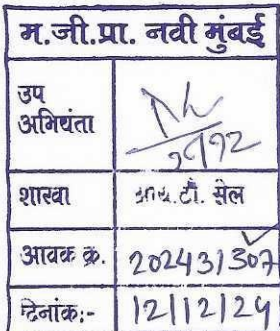 म.जी.प्रा. नवी मुंबई
उप
अभियंता
शाखा आय.टी. सेल
आवक क्र. 202431307
दिनांक:- 12/12/24